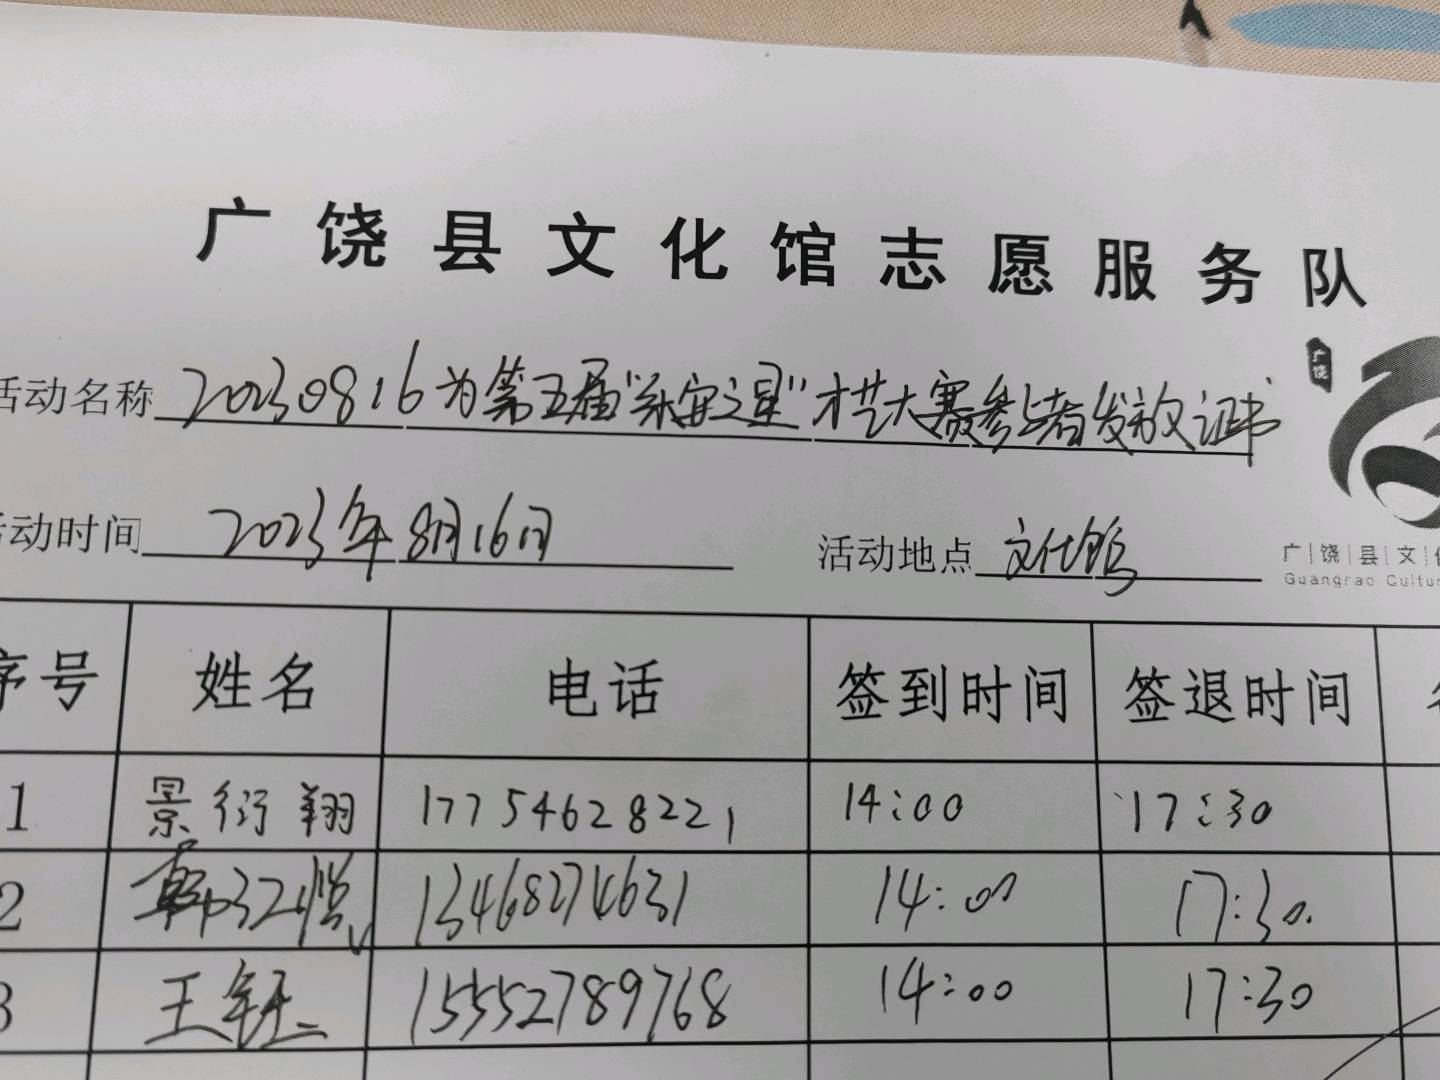 广饶县文化馆志愿服务队
活动名称 20230816为第五届"乐安之星"才艺大赛参与者发放证书
广饶
活动时间 2023年8月16日 活动地点 文化馆
广饶县文
Guangrao Cultur
序号 姓名 电话 签到时间 签退时间
1 景衍翔 17754628221 14:00 17:30
2 韩江悦 13468274631 14:00 17:30
3 王钰 15552789768 14:00 17:30